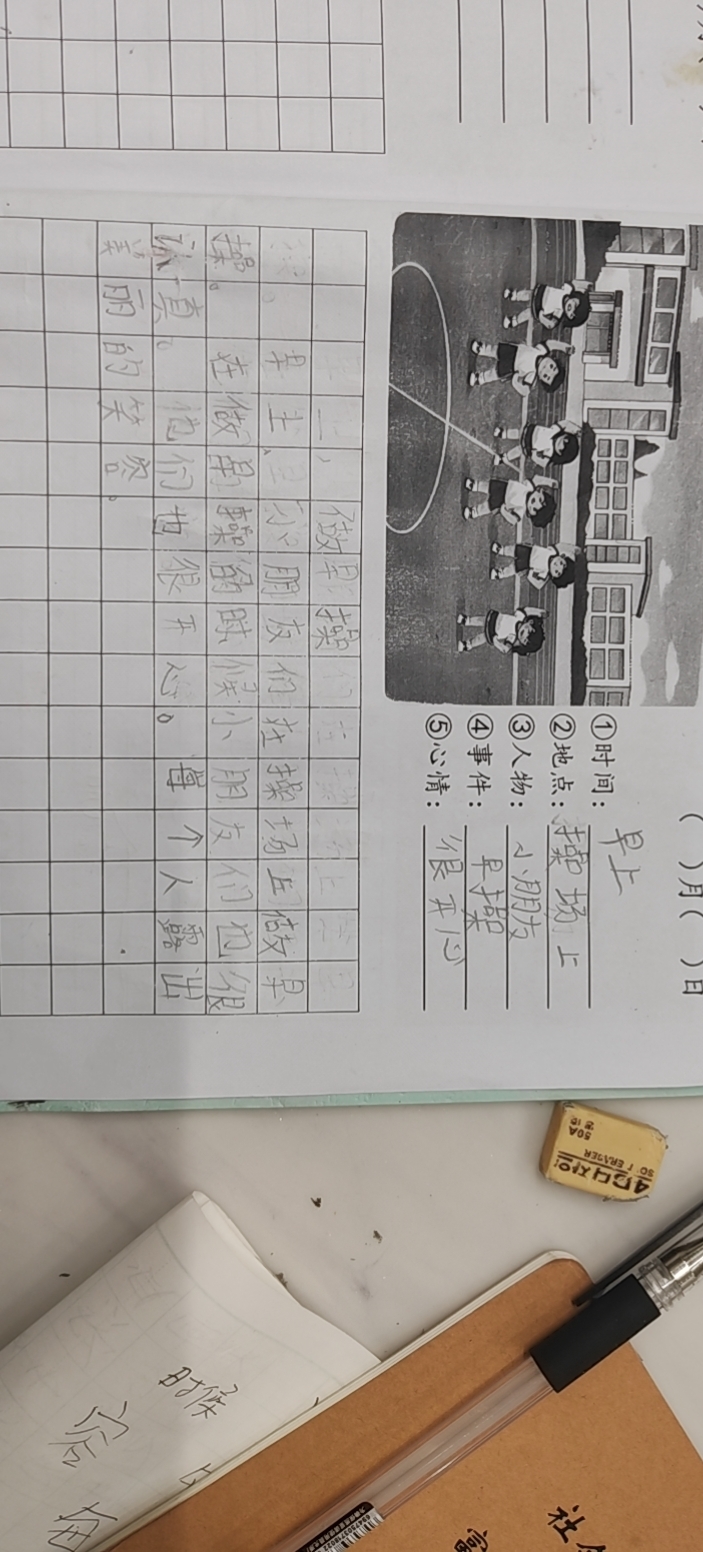 ( )月( )日
①时间：早上
②地点：操场上
③人物：小朋友
④事件：早操
⑤心情：很开心
做早操
早上，小朋友们在操场上做早
操。
在做早操的时候小朋友们也很
认真。他们也很开心。每个人露出
美丽的笑容。
时候
容
SOFT ERASER
50A
社